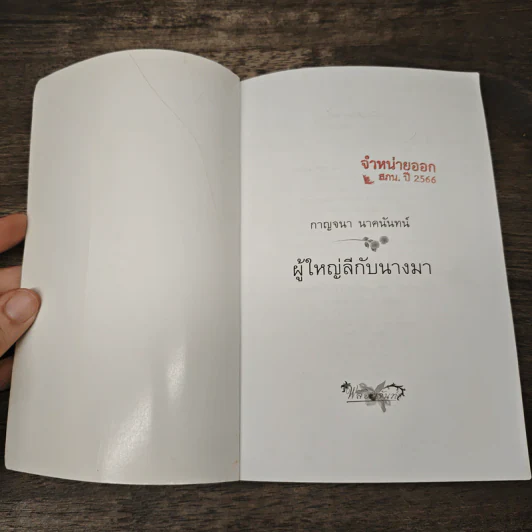 จำหน่ายออก
สภน. ปี 2566
กาญจนา นาคนันทน์
ผู้ใหญ่ลีกับนางมา